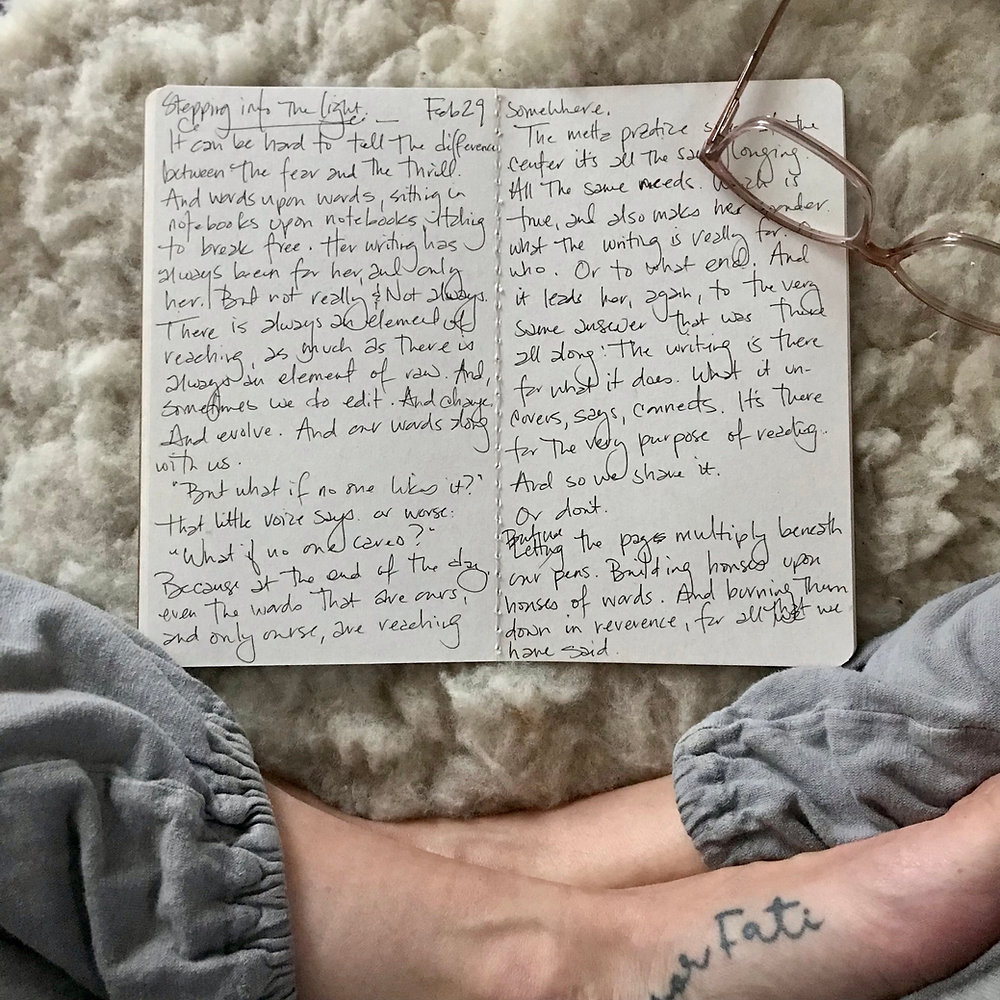 Stepping into the light. — Feb 29
It can be hard to tell the difference
between the fear and the thrill.
And words upon words, sitting in
notebooks upon notebooks, itching
to break free. Her writing has
always been for her, and only
her. But not really & Not always.
There is always an element of
reaching, as much as there is
always an element of raw. And,
sometimes we do edit. And change.
And evolve. And our words along
with us.
"But what if no one likes it?"
that little voice says. or worse:
"What if no one cares?"
Because at the end of the day,
even the words that are ours,
and only ours, are reaching
Somewhere.
The metta practice the
center it's all the same longing.
All the same needs. Which is
true, and also makes her ponder
what the writing is really for.
who. Or to what end. And
it leads her, again, to the very
same answer that was there
all along: The writing is there
for what it does. What it un-
covers, says, connects. It's there
for the very purpose of reading.
And so we share it.
Or don't.
Letting the pages multiply beneath
our pens. Building houses upon
houses of words. And burning them
down in reverence, for all that we
have said.
or Fati